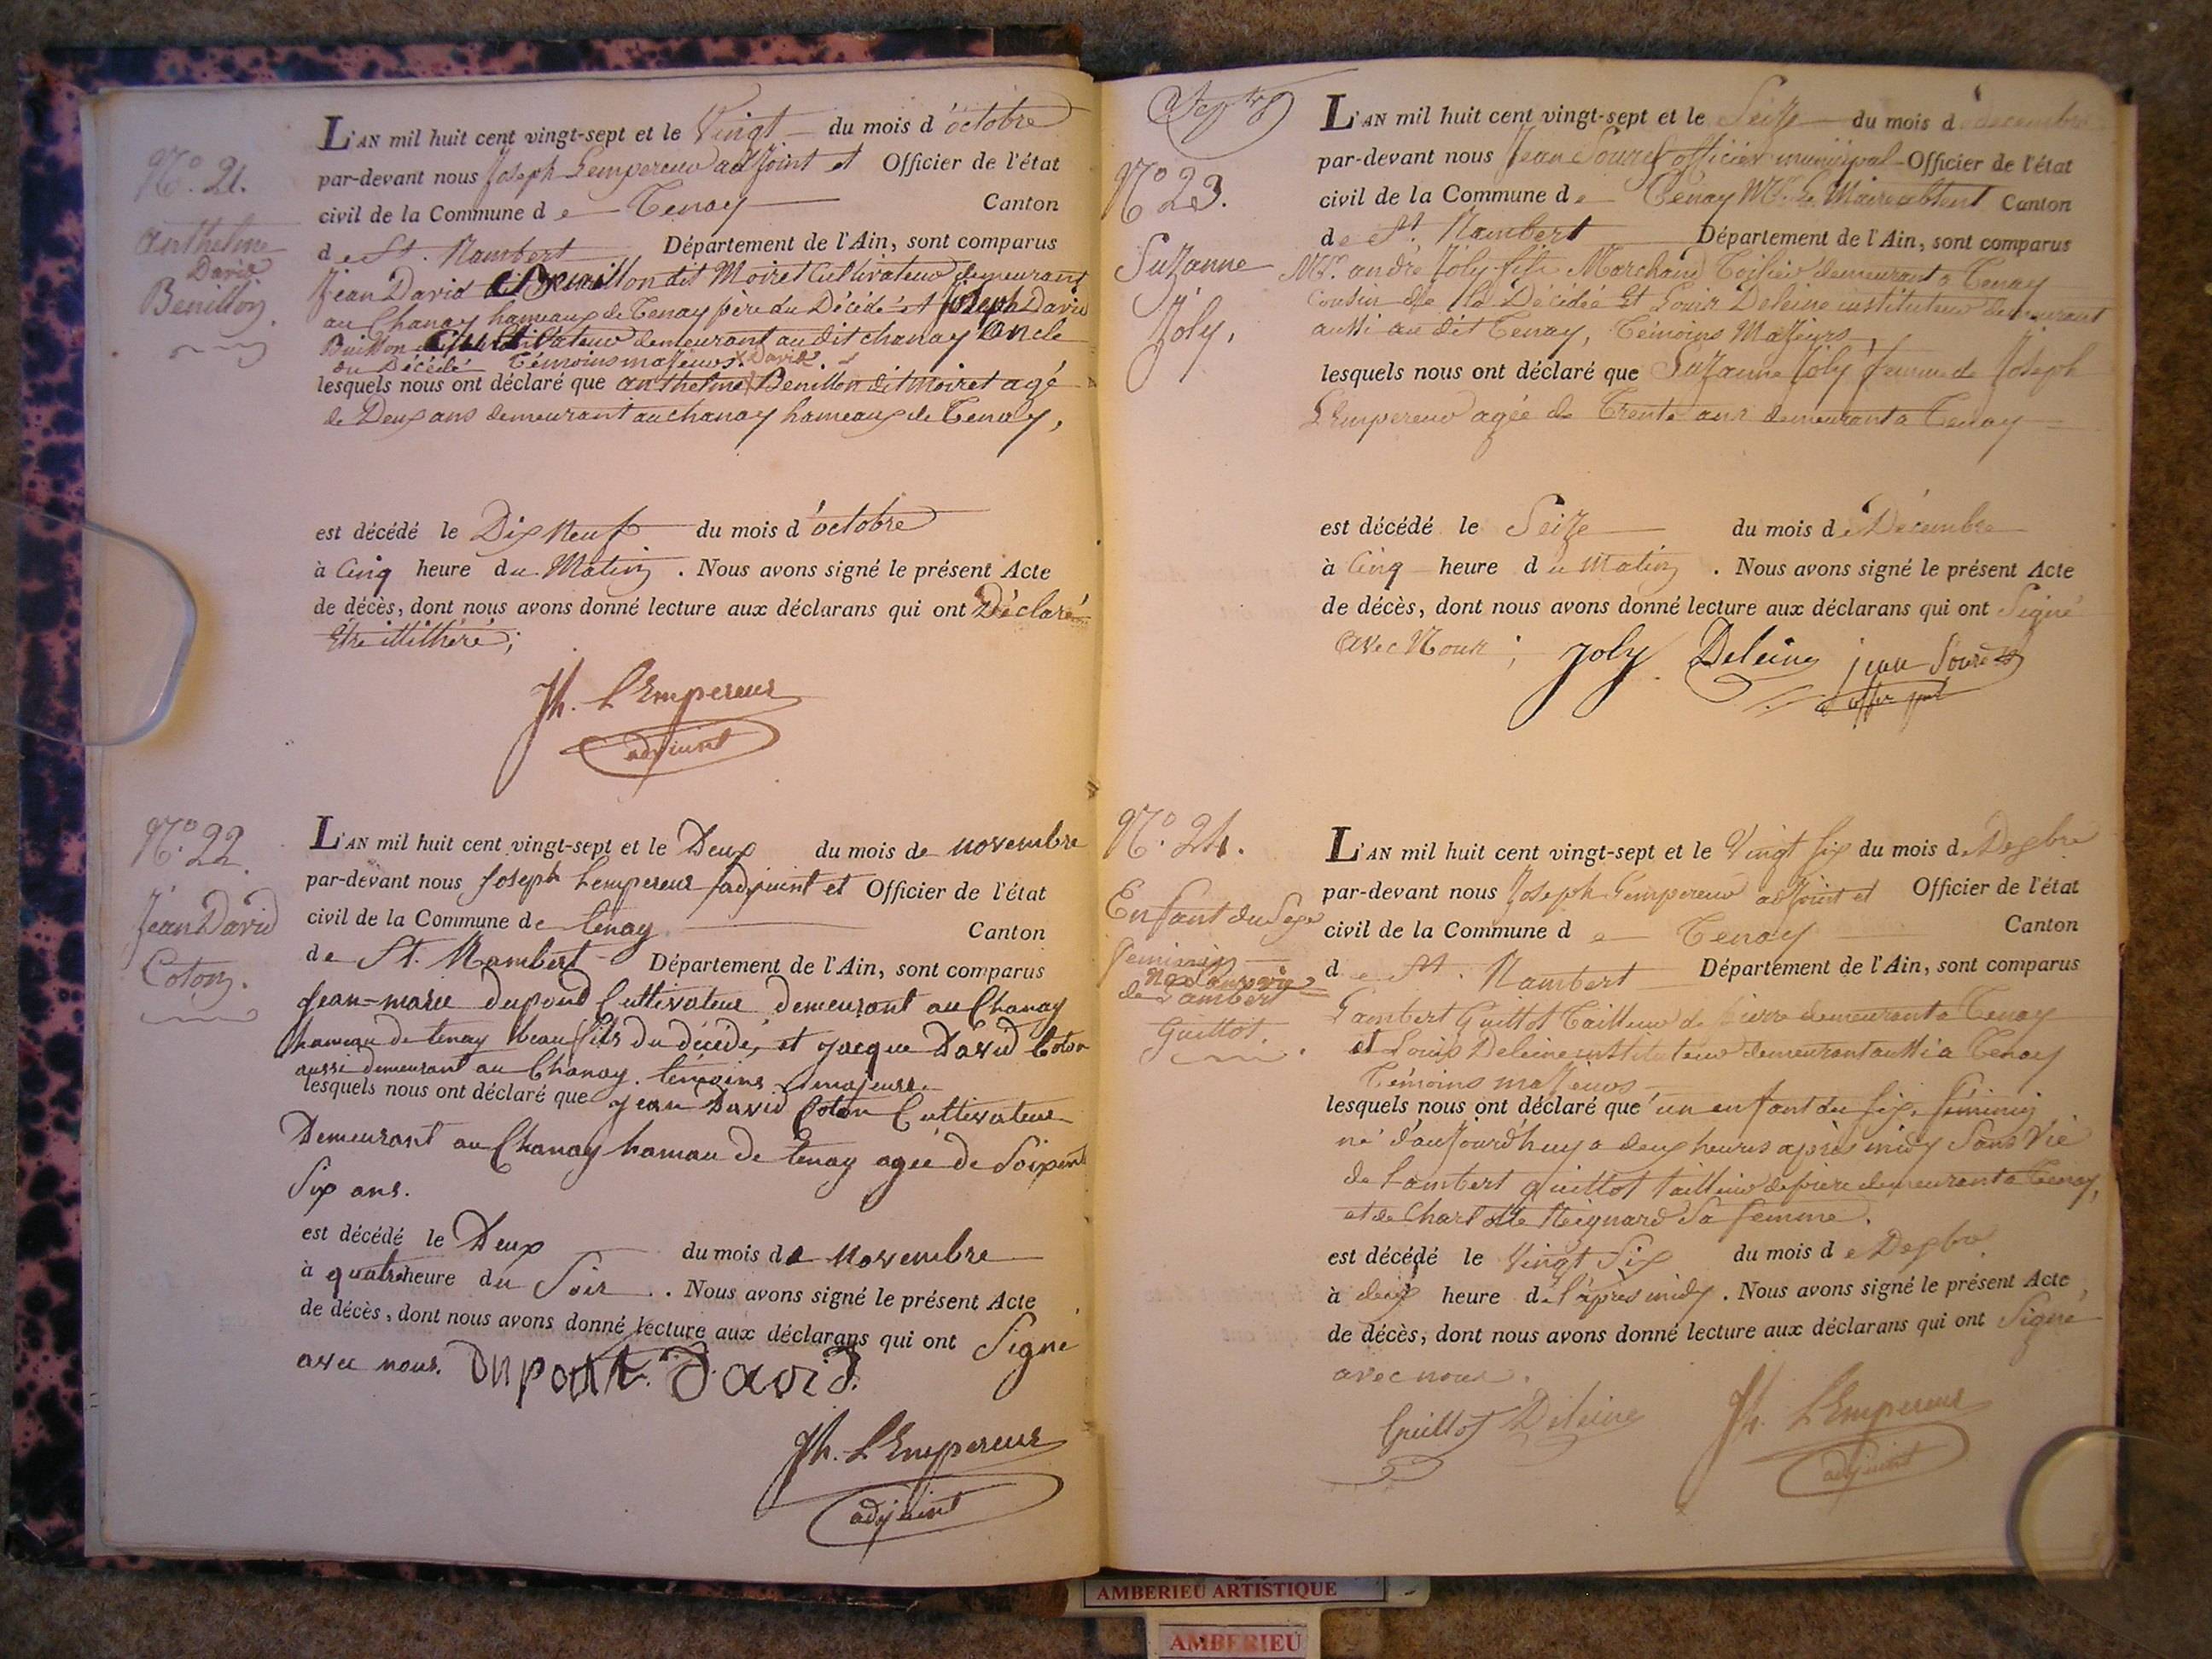 N.º 21.
anthelme
David
Benillon.
L'AN mil huit cent vingt-sept et le Vingt du mois d'octobre
par-devant nous Joseph Lempereur adjoint et Officier de l'état
civil de la Commune de Tenay Canton
de St. Rambert Département de l'Ain, sont comparus
Jean David Benillon dit Moiret Cultivateur demeurant
au Chanay hameaux de Tenay père du Décédé et Joseph David
Cultivateur demeurant au dit chanay oncle
du Décédé Témoins majeurs. David
lesquels nous ont déclaré que anthelme Benillon dit moiret agé
de Deux ans demeurant au chanay hameaux de Tenay,
est décédé le Dix Neuf du mois d'octobre
à Cinq heure du Matin. Nous avons signé le présent Acte
de décès, dont nous avons donné lecture aux déclarans qui ont Déclaré
Etre illithéré;
Jh. L'Empereur
adjoint
N.º 22.
Jean David
Coton.
L'AN mil huit cent vingt-sept et le Deux du mois de novembre
par-devant nous Joseph Lempereur adjoint et Officier de l'état
civil de la Commune de tenay Canton
de St. Rambert Département de l'Ain, sont comparus
Jean-marie dupond Cultivateur demeurant au Chanay
hameau de tenay beau fils du décédé, et jacque David Coton
aussi demeurant au Chanay. témoins majeurs.
lesquels nous ont déclaré que jean David Coton Cultivateur
Demeurant au Chanay hamau de tenay agée de Soixante
Six ans.
est décédé le Deux du mois de novembre
à quatre heure du Soir. Nous avons signé le présent Acte
de décès, dont nous avons donné lecture aux déclarans qui ont Signé
avec nous. Dupont. David.
Jh. L'Empereur
adjoint
N.º 23.
Suzanne
Joly,
L'AN mil huit cent vingt-sept et le Seize du mois de decembre
par-devant nous Jean officier municipal Officier de l'état
civil de la Commune de Tenay Mr. Le Maire absent Canton
de St. Rambert Département de l'Ain, sont comparus
Mr. andré Joly fils Marchand Toilier demeurant a Tenay
Cousin de la Décédée Et Louis Deleine instituteur demeurant
aussi au dit Tenay, Témoins Majeurs,
lesquels nous ont déclaré que Suzanne Joly femme de Joseph
L'Empereur agée de Trente ans demeurant a Tenay
est décédé le Seize du mois de Décembre
à Cinq heure du matin. Nous avons signé le présent Acte
de décès, dont nous avons donné lecture aux déclarans qui ont Signé
avec Nous; Joly Deleine jean
N.º 24.
Enfant du Sexe
féminin
né Sans vie
de Lambert
Guittot.
L'AN mil huit cent vingt-sept et le Vingt six du mois de Dexbre
par-devant nous Joseph Lempereur adjoint et Officier de l'état
civil de la Commune de Tenay Canton
de St. Rambert Département de l'Ain, sont comparus
Lambert Guittot Tailleur de pierre demeurant a Tenay
et Louis Deleine instituteur demeurant aussi a Tenay
Témoins majeurs
lesquels nous ont déclaré qu'un enfant du sexe féminin
né d'aujourd'huy a deux heures après midy Sans Vie
de Lambert guittot tailleur de pierre demeurant a Tenay,
et de Charlotte Reignard Sa femme.
est décédé le Vingt Six du mois de Dexbre
à deux heure de l'après midy. Nous avons signé le présent Acte
de décès, dont nous avons donné lecture aux déclarans qui ont Signé
avec nous.
Guittot Deleine Jh. L'Empereur
adjoint
AMBERIEU ARTISTIQUE
AMBERIEU